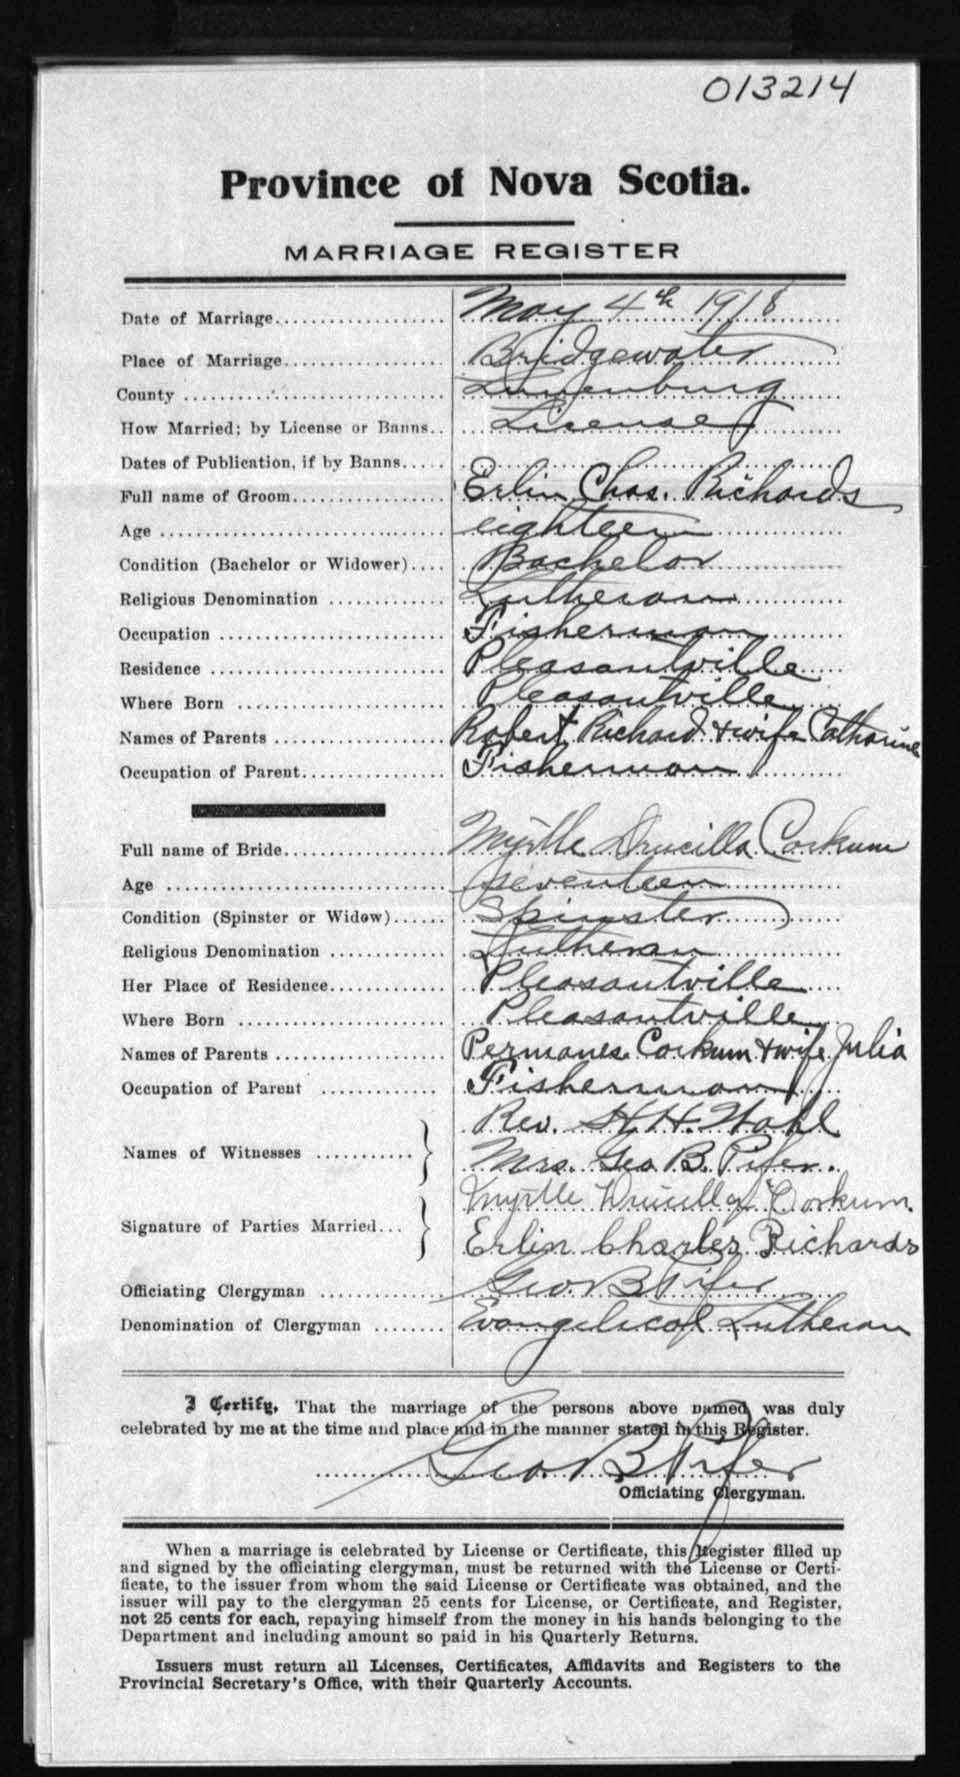 013214
Province of Nova Scotia.
MARRIAGE REGISTER
Date of Marriage.................... May 4th 1918
Place of Marriage................... Bridgewater
County .............................. Lunenburg
How Married; by License or Banns.. License
Dates of Publication, if by Banns.....
Full name of Groom.................. Erlin Chas. Richards
Age .................................. eighteen
Condition (Bachelor or Widower).... Bachelor
Religious Denomination .............. Lutheran
Occupation .......................... Fisherman
Residence ........................... Pleasantville
Where Born ......................... Pleasantville
Names of Parents .................... Robert Richard & wife Catharine
Occupation of Parent................. Fisherman
Full name of Bride................... Myrtle Drucilla Corkum
Age ................................. seventeen
Condition (Spinster or Widow)...... Spinster
Religious Denomination .............. Lutheran
Her Place of Residence.............. Pleasantville
Where Born ......................... Pleasantville
Names of Parents .................... Permanes Corkum & wife Julia
Occupation of Parent ............... Fisherman
Rev. H. H. Wahl
Names of Witnesses ............ Mrs. Geo B. Pifer.
Myrtle Drucilla Corkum.
Signature of Parties Married... Erlin Charles Richards
Officiating Clergyman ............... Geo. B Pifer
Denomination of Clergyman ........ Evangelical Lutheran
I Certify, That the marriage of the persons above named was duly
celebrated by me at the time and place and in the manner stated in this Register.
Geo. B Pifer
Officiating Clergyman.
When a marriage is celebrated by License or Certificate, this Register filled up
and signed by the officiating clergyman, must be returned with the License or Certi-
ficate, to the issuer from whom the said License or Certificate was obtained, and the
issuer will pay to the clergyman 25 cents for License, or Certificate, and Register,
not 25 cents for each, repaying himself from the money in his hands belonging to the
Department and including amount so paid in his Quarterly Returns.
Issuers must return all Licenses, Certificates, Affidavits and Registers to the
Provincial Secretary's Office, with their Quarterly Accounts.